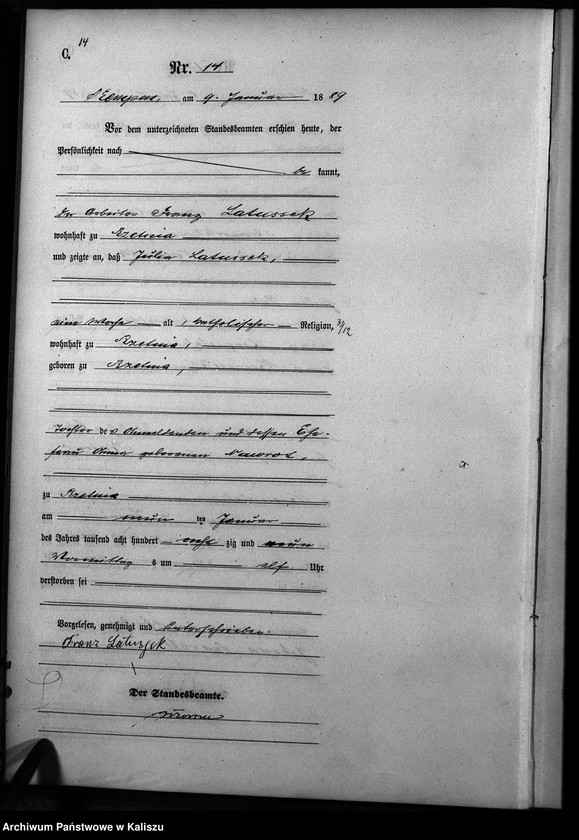 14
C.
Nr. 14
Kempen, am 9. Januar 1889
Vor dem unterzeichneten Standesbeamten erschien heute, der
Persönlichkeit nach
be kannt,
der Arbeiter Franz Latussek
wohnhaft zu Rzetnia
und zeigte an, daß Julia Latussek,
eine Woche alt, katholischer Religion, 3/12
wohnhaft zu Rzetnia,
geboren zu Rzetnia,
Tochter des Anmeldenden und dessen Ehe-
frau Anna geborenen Nawrot,
zu Rzetnia
am neun ten Januar
des Jahres tausend acht hundert acht zig und neun
Vormittag s um elf Uhr
verstorben sei
Vorgelesen, genehmigt und unterschrieben.
Franz Latuszek
Der Standesbeamte.
Archiwum Państwowe w Kaliszu